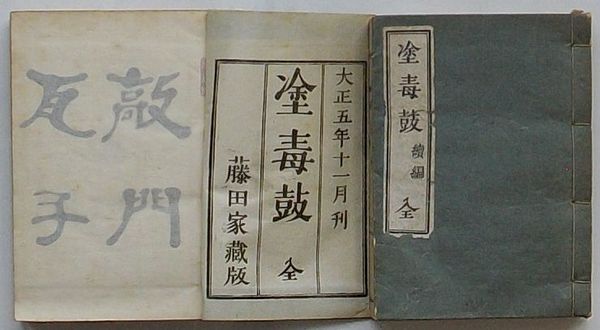 塗毒鼓 續編 全
大正五年十一月刊
塗毒鼓 全
藤田家藏版
敲門
瓦子